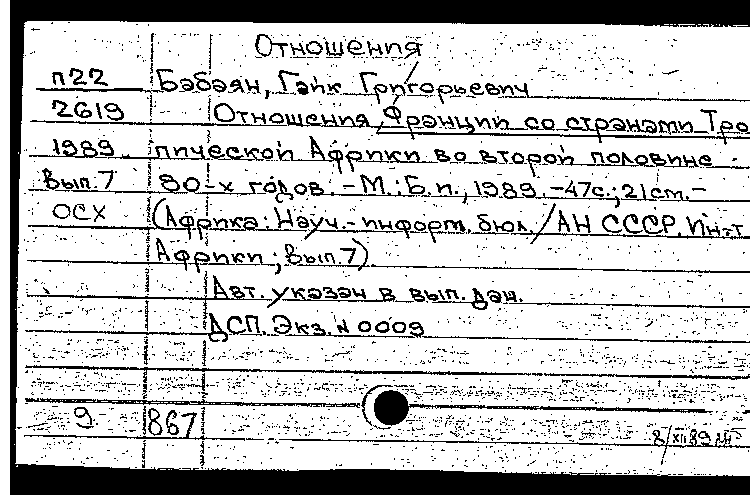 Отношения
п22 Бабаян, Гайк Григорьевич
2619 Отношения Франции со странами Тро
1989 пической Африки во второй половине
Вып.7 80-х годов. -М.:Б.и., 1989. -47с.; 21см.-
ОСХ (Африка: Науч.-информ. бюл./АН СССР. Ин-т
Африки; Вып.7).
Авт. указан в вып. дан.
ДСП. Экз. № 0009
9 867
8/XII 89